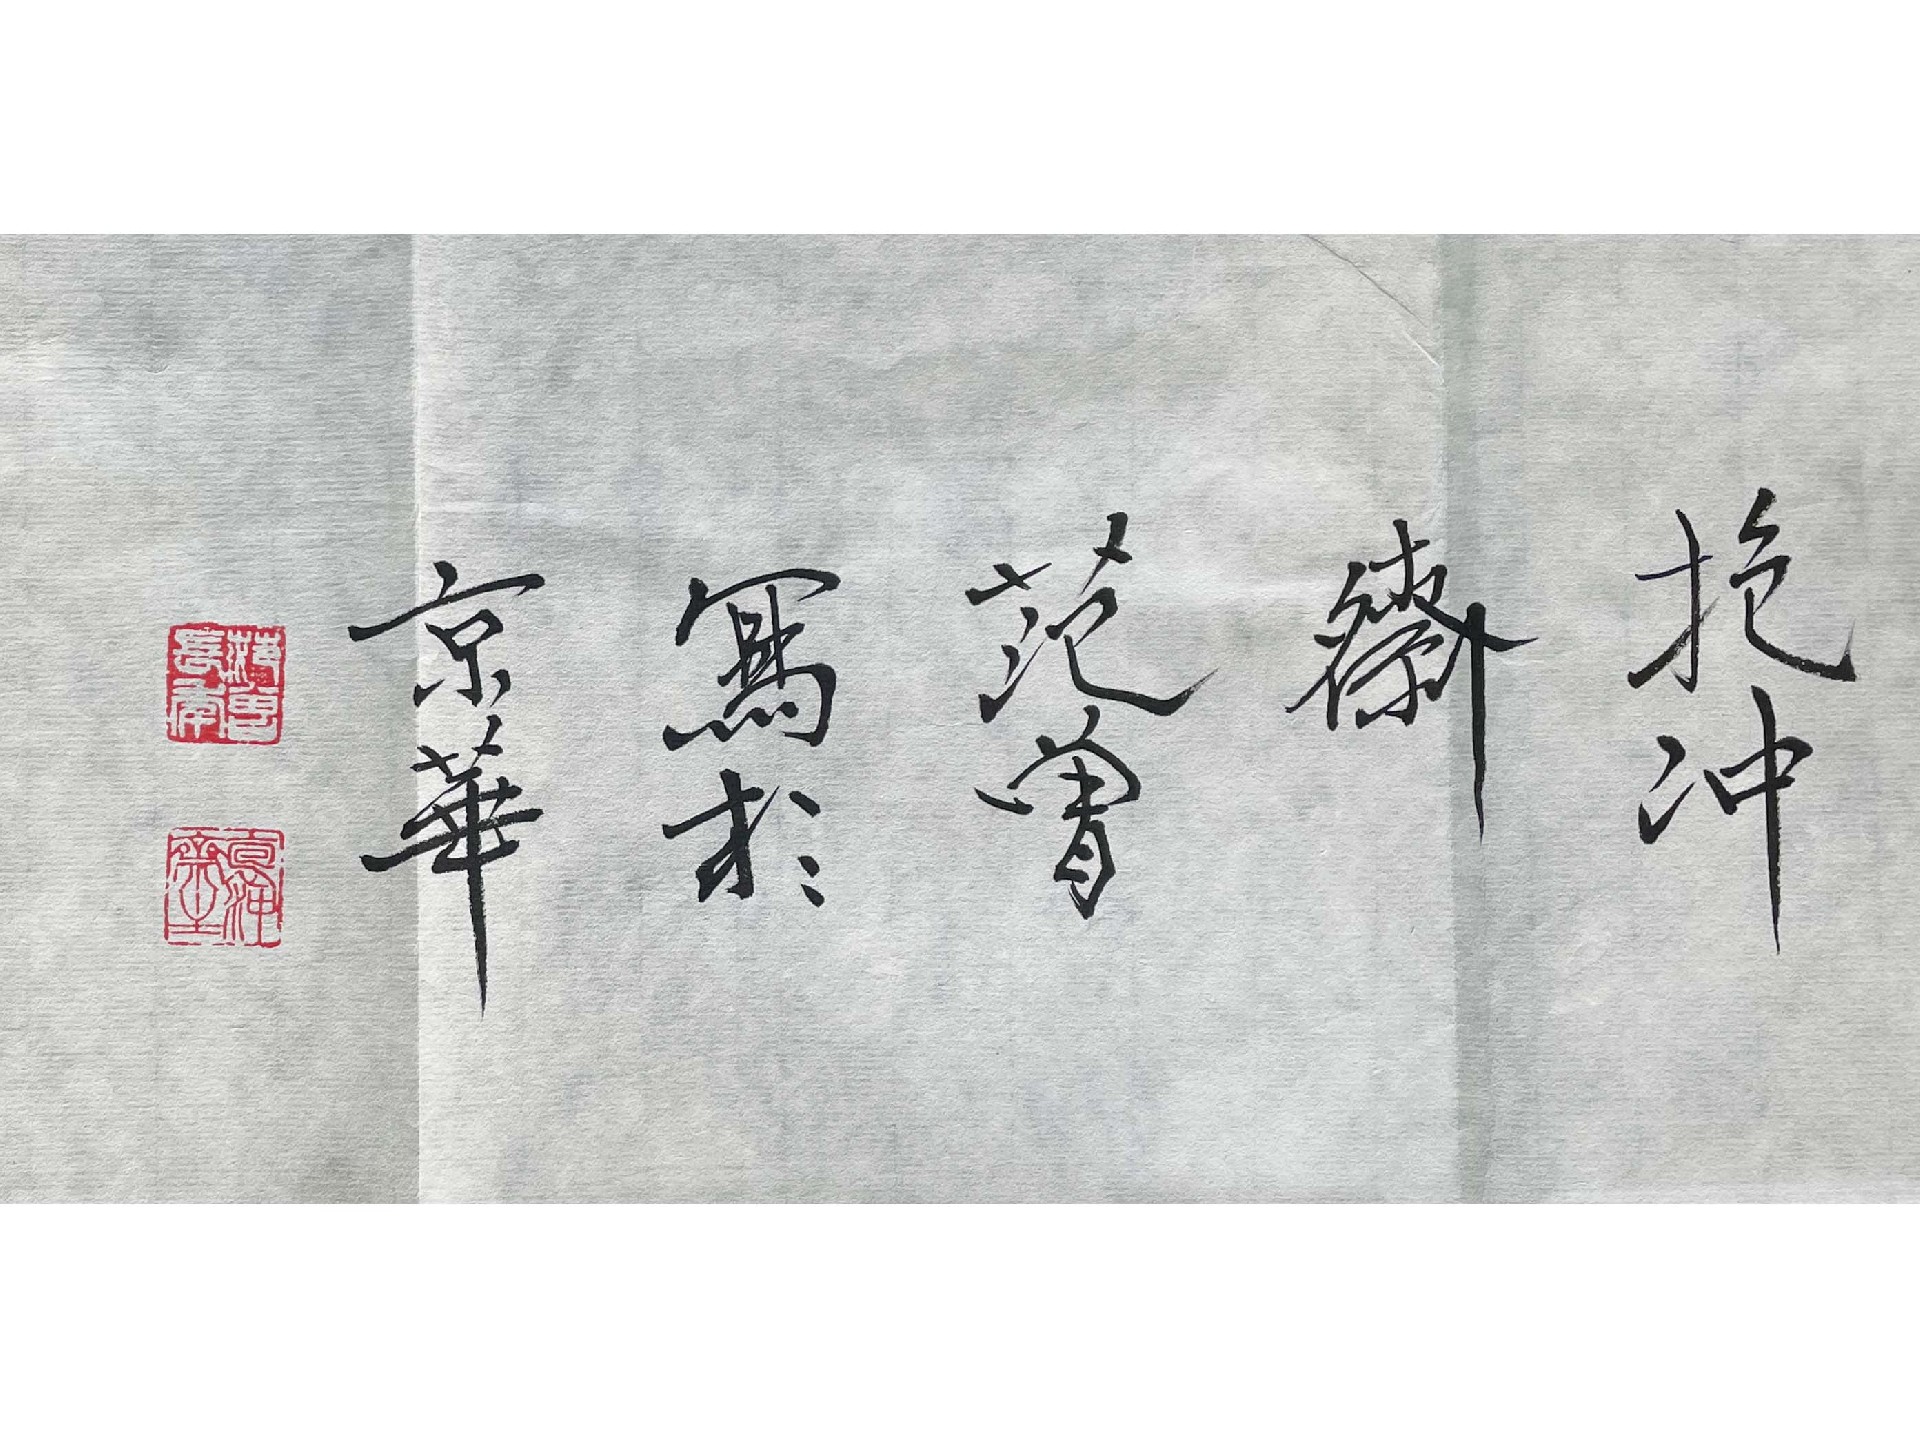 抱冲
齋
范曾
寫於
京華